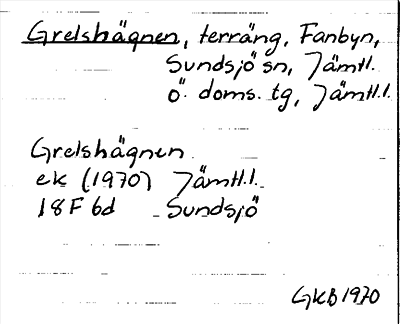 Grelshägnen, terräng, Fanbyn,
Sundsjö sn, Jämtl.
Ö. doms. tg, Jämtl.l.
Grelshägnen
ek (1970) Jämtl.l.
18F 6d Sundsjö
GKB 1970